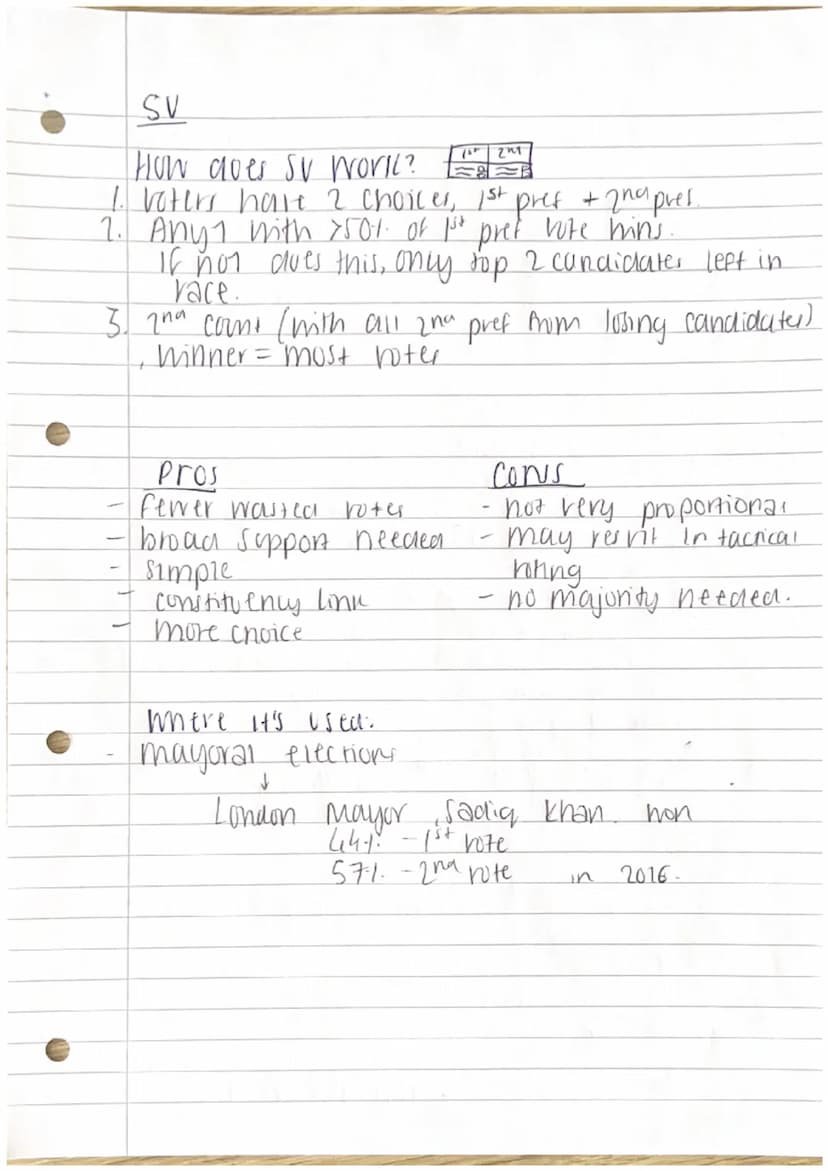 SV
How does SV work?
1st 2nd
1. Voters have 2 choices, 1st pref + 2nd pref.
2. Any1 with >50% of 1st pref vote wins.
If no1 does this, only top 2 candidates left in
race.
3. 2nd count (with all 2nd pref from losing candidates)
, winner = most votes
Pros
- fewer wasted votes
- broad support needed
- simple
- constituency link
- more choice
Cons
- not very proportional
- may result in tactical
voting
- no majority needed.
Where it's used.
- mayoral elections
↓
London Mayor, Sadiq Khan won
44% - 1st vote
57% - 2nd vote in 2016.